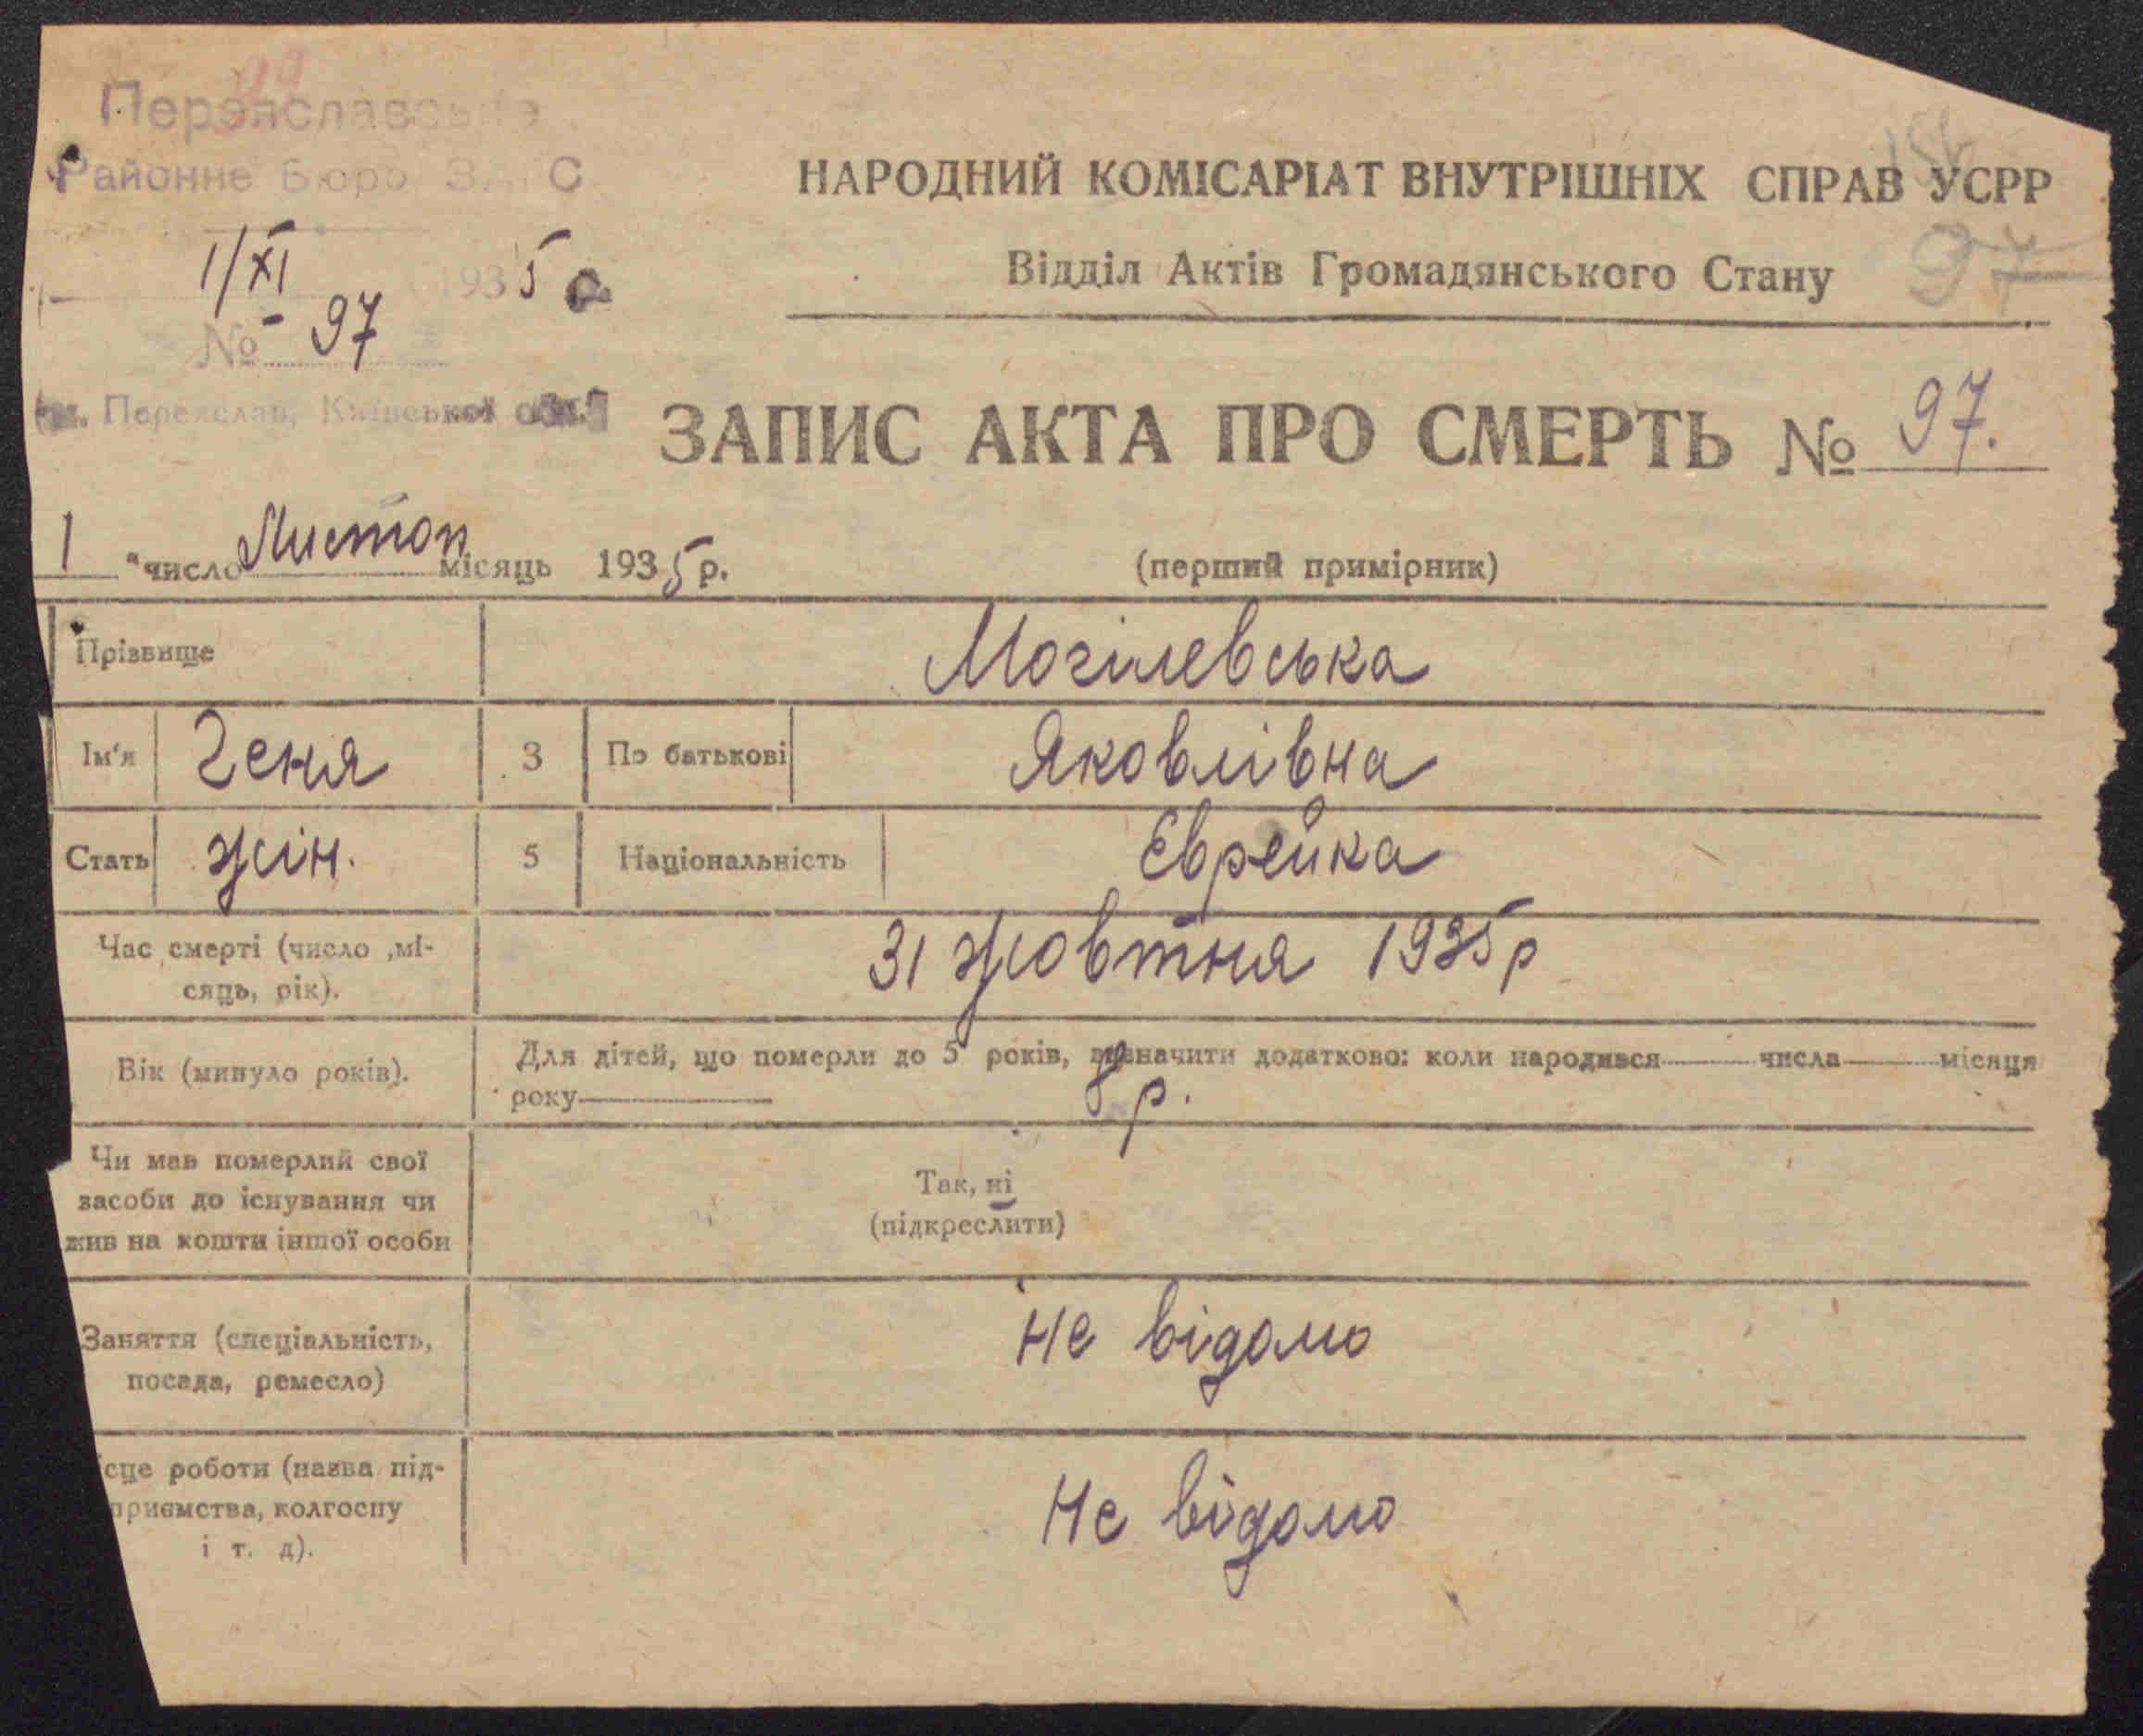 99
Переяславське
Районне Бюро ЗАГС
1/XI 1935 р.
№ 97
м. Переяслав, Київської обл.
156
НАРОДНИЙ КОМІСАРІАТ ВНУТРІШНІХ СПРАВ УСРР
Відділ Актів Громадянського Стану
97
ЗАПИС АКТА ПРО СМЕРТЬ № 97.
1 "число Листоп місяць 1935 р.
(перший примірник)
Прізвище
Могілевська
Ім'я Геня 3 По батькові Яковлівна
Стать жін. 5 Національність Єврейка
Час смерті (число ,мі-
сяць, рік).
31 жовтня 1935 р
Вік (минуло років).
Для дітей, що померли до 5 років, визначити додатково: коли народився числа місяця
року
р.
Чи мав померлий свої
засоби до існування чи
жив на кошти іншої особи
Так, ні
(підкреслити)
Заняття (спеціальність,
посада, ремесло)
не відомо
ісце роботи (назва під-
приємства, колгоспу
і т. д).
Не відомо